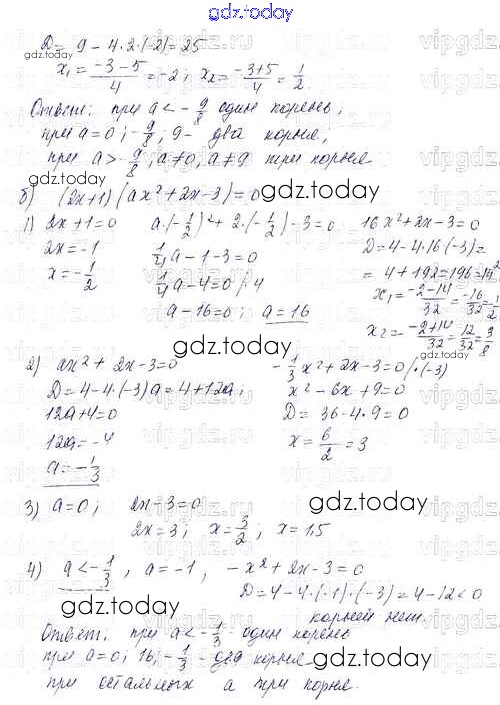 gdz.today
D = 9 - 4·2·(-2) = 25
gdz.today
x₁ = (-3-5)/4 = -2; x₂ = (-3+5)/4 = 1/2
Ответ: при a < -9/8 один корень,
при a = 0; -9/8; 9 - два корня,
при a > -9/8, a ≠ 0, a ≠ 9 три корня
gdz.today
б) (2x+1)(ax²+2x-3)=0
1) 2x+1=0 a·(-1/2)²+2·(-1/2)-3=0 16x²+2x-3=0
2x=-1 1/4a-1-3=0 D=4-4·16(-3)=
x=-1/2 1/4a-4=0 /·4 =4+192=196=14²
a-16=0; a=16 x₁=(-2-14)/32=-16/32=1/2
x₂=(-2+14)/32=12/32=3/8
gdz.today
2) ax²+2x-3=0 -1/3x²+2x-3=0/·(-3)
D=4-4·(-3)a=4+12a; x²-6x+9=0
12a+4=0 D=36-4·9=0
12a=-4 x=6/2=3
a=-1/3
gdz.today
3) a=0; 2x-3=0
2x=3; x=3/2; x=1,5
4) a<-1/3, a=-1, -x²+2x-3=0
gdz.today
D=4-4·(-1)·(-3)=4-12<0
корней нет
Ответ: при a<-1/3 - один корень
при a=0; 16; -1/3 - два корня
gdz.today
при остальных a три корня.